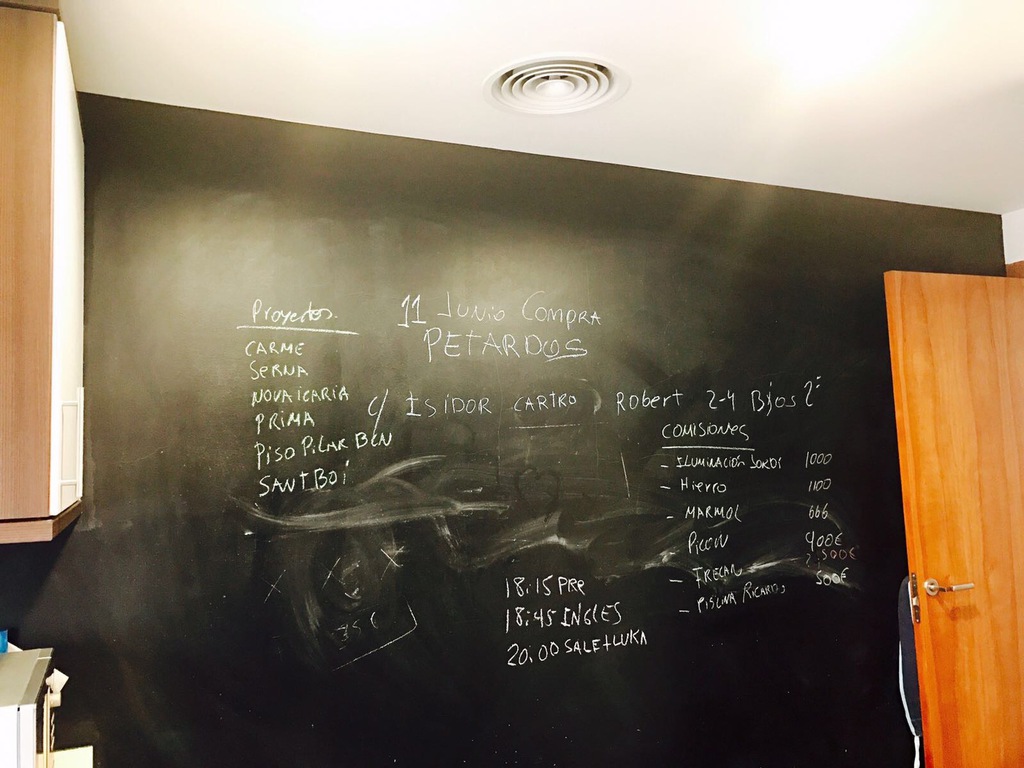 Proyectos.
CARME
SERNA
NOVA iCARiA
PRIMA
PiSO PiLAR BCN
SANT BOi
11 JUNiO COMPRA
PETARDOS
C/ ISIDOR CARTRO Robert 2-4 Bjos 2ª
COMISIONES
- ILUMINACIÓN JORDI 1000
- Hierro 1100
- MARMOL 666
- PICON 900€
500€
- IRECAN 500€
- PISCINA RICARDO
18:15 PRE
18:45 INGLES
20.00 SALE+LUKA